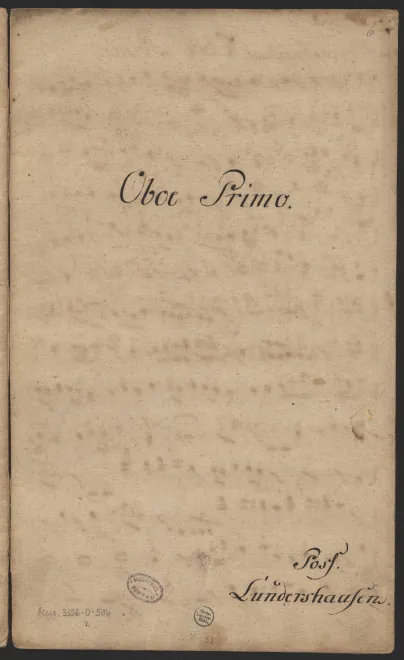 Oboe Primo.
Poss.
Lündershausen.
Mus. 3356-O-504